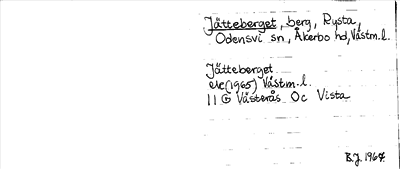 Jätteberget, berg, Rysta,
Odensvi sn, Åkerbo hd, Västm.l.
Jätteberget
ek (1965) Västm.l.
11 G Västerås Oc Vista
B.J. 1967.